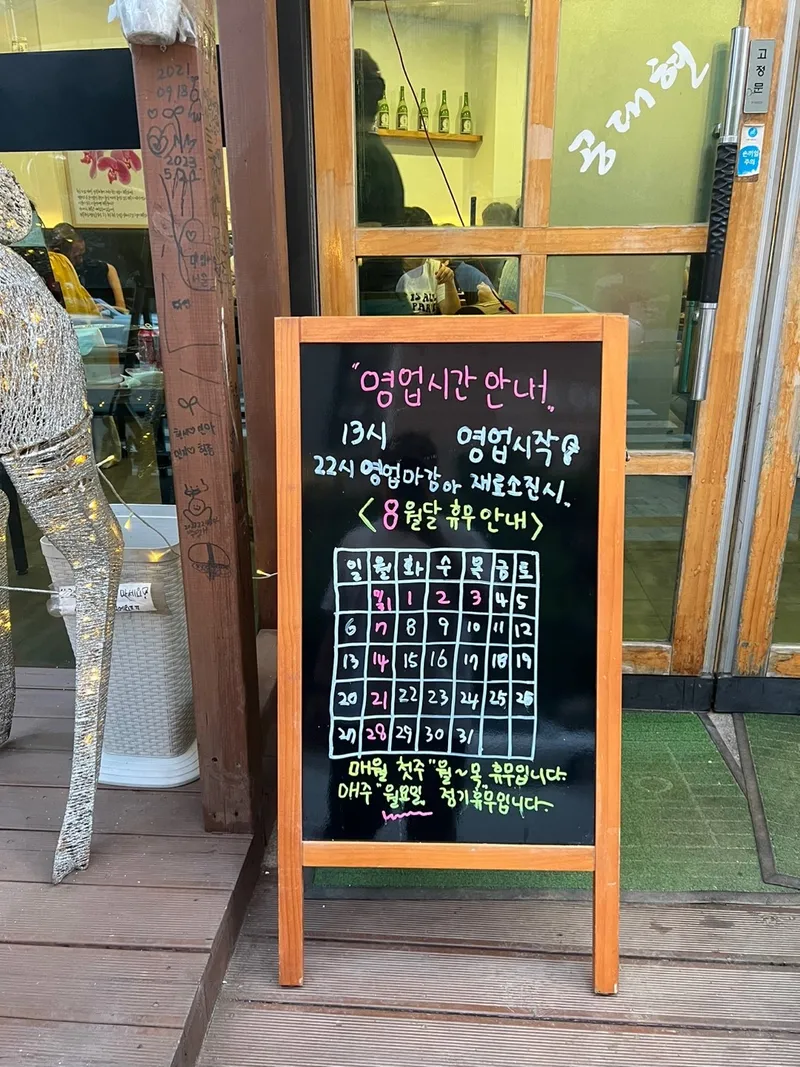 "영업시간 안내"
13시 영업시작
22시 영업마감 or 재료소진시..
<8월달 휴무 안내>
일 월 화 수 목 금 토
1 2 3 4 5
6 7 8 9 10 11 12
13 14 15 16 17 18 19
20 21 22 23 24 25 26
27 28 29 30 31
매월 첫주 "월~목" 휴무입니다.
매주 "월요일" 정기휴무입니다.
공대형
고정문
손끼임
주의
2021
09.18
2023
IS AL